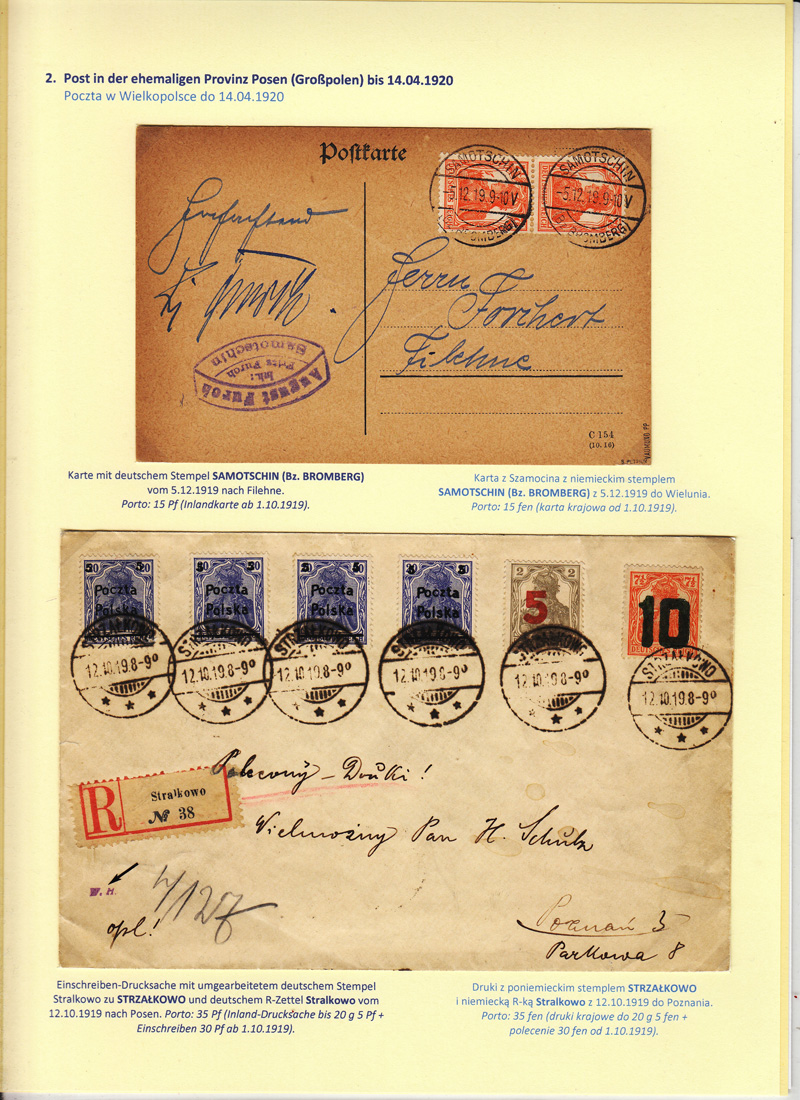 2. Post in der ehemaligen Provinz Posen (Großpolen) bis 14.04.1920
Poczta w Wielkopolsce do 14.04.1920
Postkarte
SAMOTSCHIN
12.19.9-10V
(Bz. BROMBERG)
SAMOTSCHIN
-5.12.19.9-10V
(Bz. BROMBERG)
Hochachtend
Herrn
Forchert
Filehne
August Furch
Inh.:
Fritz Furch
Samotschin
C 154
(10. 16)
Karte mit deutschem Stempel SAMOTSCHIN (Bz. BROMBERG)
vom 5.12.1919 nach Filehne.
Porto: 15 Pf (Inlandkarte ab 1.10.1919).
Karta z Szamocina z niemieckim stemplem
SAMOTSCHIN (Bz. BROMBERG) z 5.12.1919 do Wielunia.
Porto: 15 fen (karta krajowa od 1.10.1919).
Poczta
Polska
Poczta
Polska
Poczta
Polska
Poczta
Polska
2 2
5
7½ 7½
10
STRZAŁKOWO
12.10.19.8-9⁰
STRZAŁKOWO
12.10.19.8-9⁰
STRZAŁKOWO
12.10.19.8-9⁰
STRZAŁKOWO
12.10.19.8-9⁰
STRZAŁKOWO
12.10.19.8-9⁰
STRZAŁKOWO
12.10.19.8-9⁰
Polecony - Druki!
R
Stralkowo
№ 38
Wielmożny Pan H. Schulz
W. H.
4/127
opl!
Poznań 3
Parkowa 8
Einschreiben-Drucksache mit umgearbeitetem deutschem Stempel
Stralkowo zu STRZAŁKOWO und deutschem R-Zettel Stralkowo vom
12.10.1919 nach Posen. Porto: 35 Pf (Inland-Drucksache bis 20 g 5 Pf +
Einschreiben 30 Pf ab 1.10.1919).
Druki z poniemieckim stemplem STRZAŁKOWO
i niemiecką R-ką Stralkowo z 12.10.1919 do Poznania.
Porto: 35 fen (druki krajowe do 20 g 5 fen +
polecenie 30 fen od 1.10.1919).